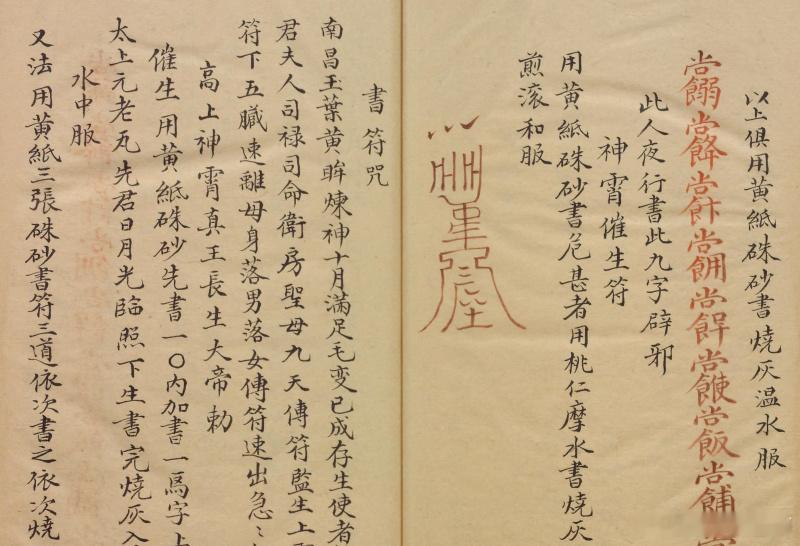 以上俱用黄紙硃砂書燒灰温水服
此人夜行書此九字辟邪
神霄催生符
用黄紙硃砂書危甚者用桃仁摩水書燒灰
煎滚和服
書符咒
南昌玉葉黄眸煉神十月滿足毛变已成存生使者
君夫人司禄司命衛房聖母九天傳符監生上
符下五臟速離母身落男落女傳符速出急〻
高上神霄真王長生大帝勅
催生用黄紙硃砂先書一〇内加書一馬字上
太上元老瓦先君日月光臨照下生書完燒灰入
水中服
又法用黄紙三張硃砂書符三道依次書之依次燒